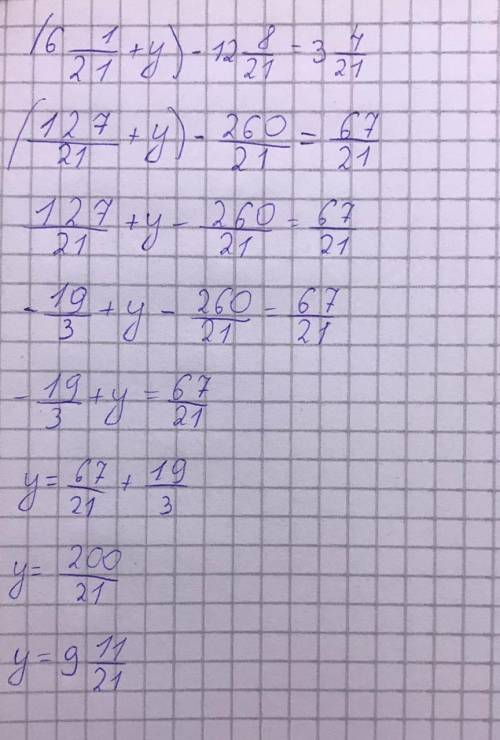 (6 1/21 + y) - 12 8/21 = 3 4/21
(127/21 + y) - 260/21 = 67/21
127/21 + y - 260/21 = 67/21
- 19/3 + y - 260/21 = 67/21
- 19/3 + y = 67/21
y = 67/21 + 19/3
y = 200/21
y = 9 11/21